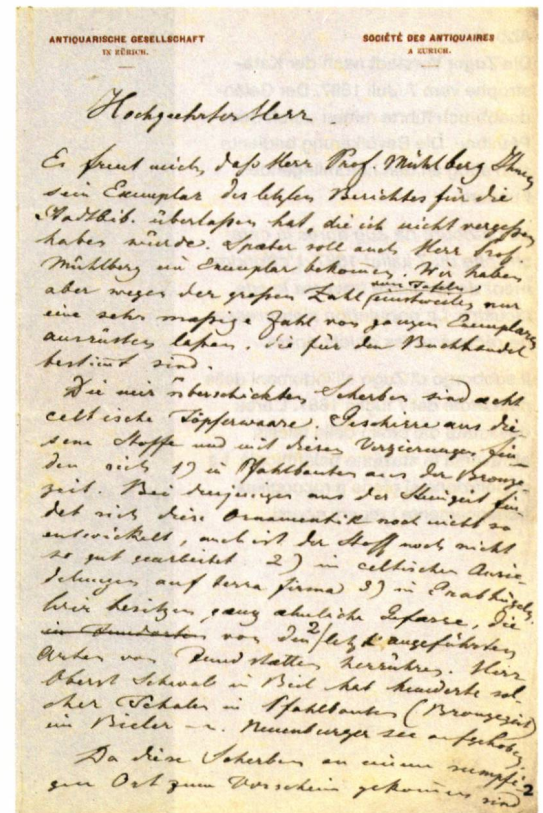 ANTIQUARISCHE GESELLSCHAFT
IN ZÜRICH.
SOCIÉTÉ DES ANTIQUAIRES
A ZURICH.
Hochgeehrter Herr
Es freut mich, daß Herr Prof. Mühlberg Ihnen
sein Exemplar des letzten Berichtes für die
Stadtbib. überlassen hat, die ich nicht vergessen
haben würde. Spaeter soll auch Herr Prof
Mühlberg ein Exemplar bekommen. Wir haben
aber wegen der großen Zahl von Tafeln einstweilen nur
eine sehr maßige Zahl von ganzen Exemplaren
ausrüsten laßen, die für den Buchhandel
bestimt sind
Die mir überschickten Scherben sind aecht
celtische Töpferwaare. Geschirre aus die
sem Stoffe und mit diesen Verzierungen fin-
den sich 1) in Pfahlbauten aus der Bronze
zeit. Bei denjenigen aus der Steinzeit fin-
det sich diese Ornamentik noch nicht so
entwickelt, auch ist der Stoff noch nicht
so gut gearbeitet 2) in celtischen Ansie-
delungen auf terra firma 3) in Grabhügeln.
Wir besitzen ganz aehnliche Gefässe, die
von den 2 letzt angeführten
Arten von Fundstätten herrühren. Herr
Oberst Schwab in Biel hat hunderte sol-
cher Schalen in Pfahlbauten (Bronzezeit)
im Bieler u. Neuenburger see aufgehoben.
Da diese Scherben an einem sumpfi-
gen Ort zum Vorschein gekommen sind
2